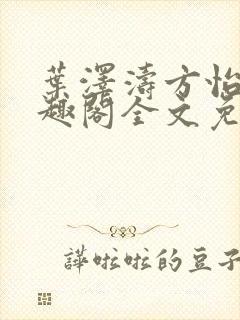 葉澤濤方怡
趣閣全文免
譁啦啦的豆子